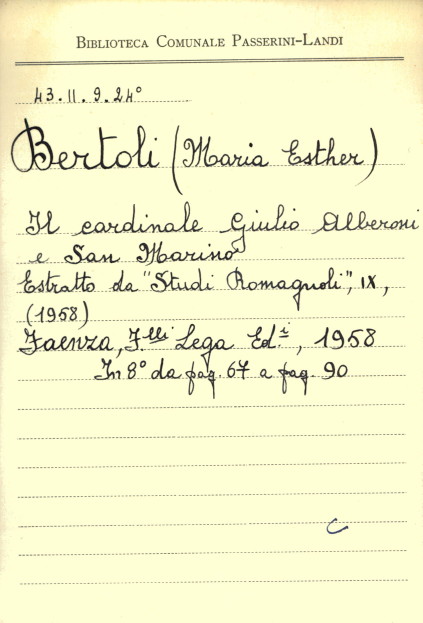 BIBLIOTECA COMUNALE PASSERINI-LANDI
43.II.9.24°
Bertoli (Maria Esther)
Il cardinale Giulio Alberoni
e San Marino
Estratto da "Studi Romagnoli", IX,
(1958)
Faenza, F.lli Lega Ed.i, 1958
In 8° da pag. 67 a pag. 90
C